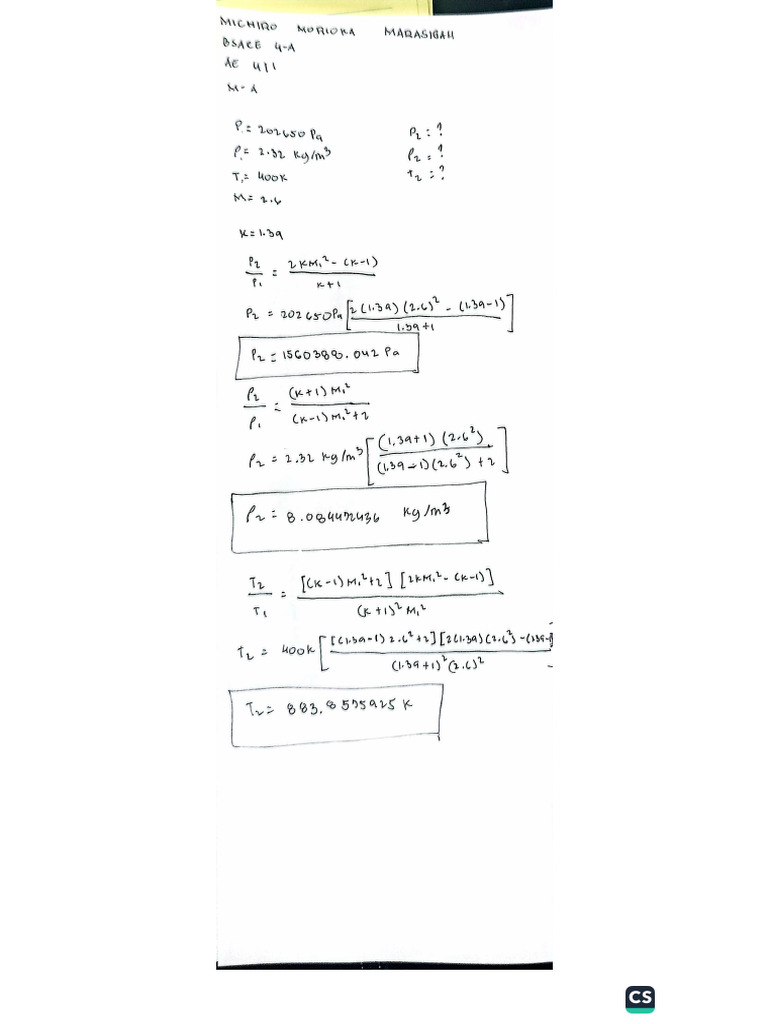 MICHIRO MORIOKA MARASIGAN
BSACE 4-A
AE 411
M-A
P₁= 202650 Pa P₂ = ?
ρ₁= 2.32 kg/m³ ρ₂ = ?
T₁= 400K T₂ = ?
M= 2.6
K=1.39
P₂/P₁ = 2KM₁² - (K-1) / K+1
P₂ = 202650Pa [2(1.39)(2.6)² - (1.39-1) / 1.39+1]
P₂ = 1560388.042 Pa
ρ₂/ρ₁ = (K+1)M₁² / (K-1)M₁²+2
ρ₂ = 2.32 kg/m³ [(1.39+1)(2.6²) / (1.39-1)(2.6²)+2]
ρ₂ = 8.084472436 kg/m³
T₂/T₁ = [(K-1)M₁²+2][2KM₁²-(K-1)] / (K+1)²M₁²
T₂ = 400K [[(1.39-1)2.6²+2][2(1.39)(2.6²)-(1.39-1) / (1.39+1)²(2.6)²
T₂= 883.8575925 K
CS